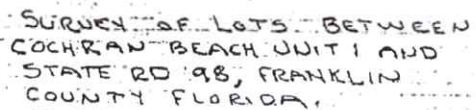 SURVEY OF LOTS BETWEEN
COCHRAN BEACH UNIT 1 AND
STATE RD 98, FRANKLIN
COUNTY FLORIDA.